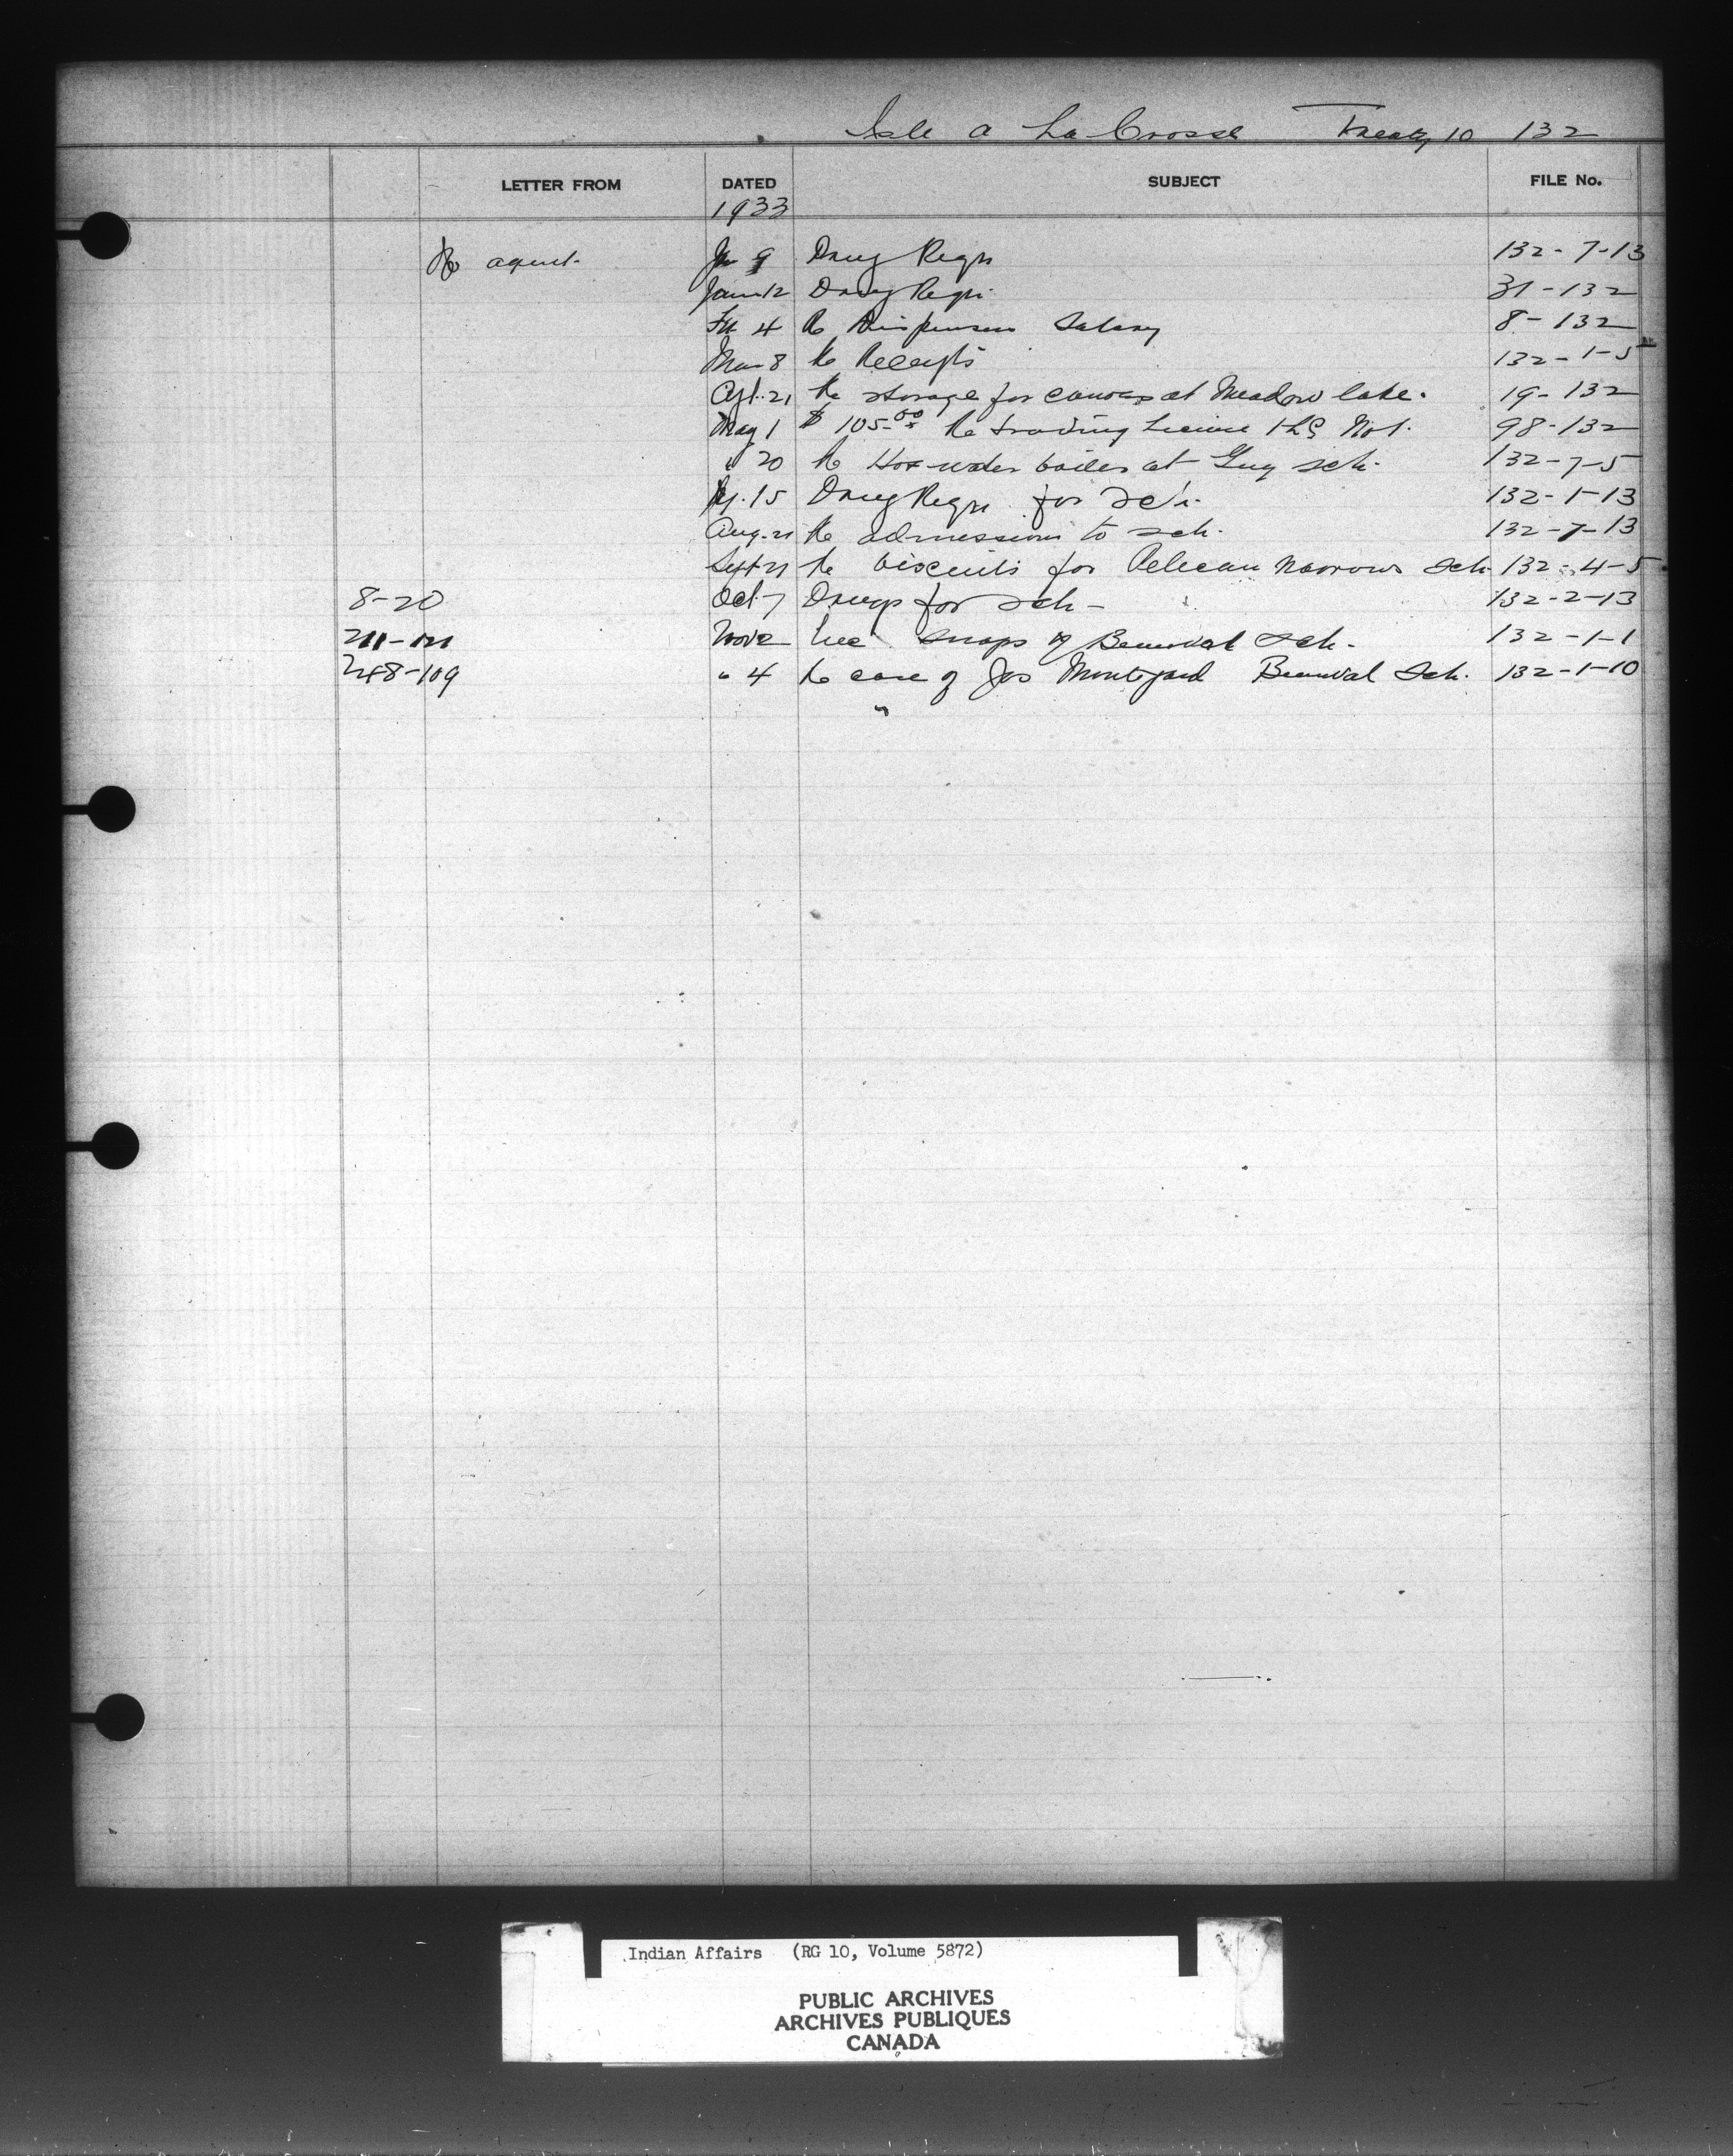 Isle a La Crosse Treaty 10 132
LETTER FROM DATED SUBJECT FILE No.
1933
agent. 9 Drug Reqn 132-7-13
Jan 12 Drug Reqn. 31-132
4 Re Dispenser Salary 8-132
Mar 8 Re Receipts 132-1-5
Apl. 21 Re storage for canoes at Meadow lake. 19-132
May 1 $ 105.00 Re trading License No 1. 98-132
" 20 Re Hot-water boiler at Guy sch. 132-7-5
15 Drug Reqn for Sch. 132-1-13
Aug. 21 Re admissions to sch. 132-7-13
Sept 21 Re biscuits for Pelican Narrows Sch. 132-4-5
8-20 Oct 7 Drugs for sch- 132-2-13
Nov 2 snaps of Beauval Sch. 132-1-1
248-109 " 4 Re case of Jos Beauval Sch. 132-1-10
Indian Affairs (RG 10, Volume 5872)
PUBLIC ARCHIVES
ARCHIVES PUBLIQUES
CANADA